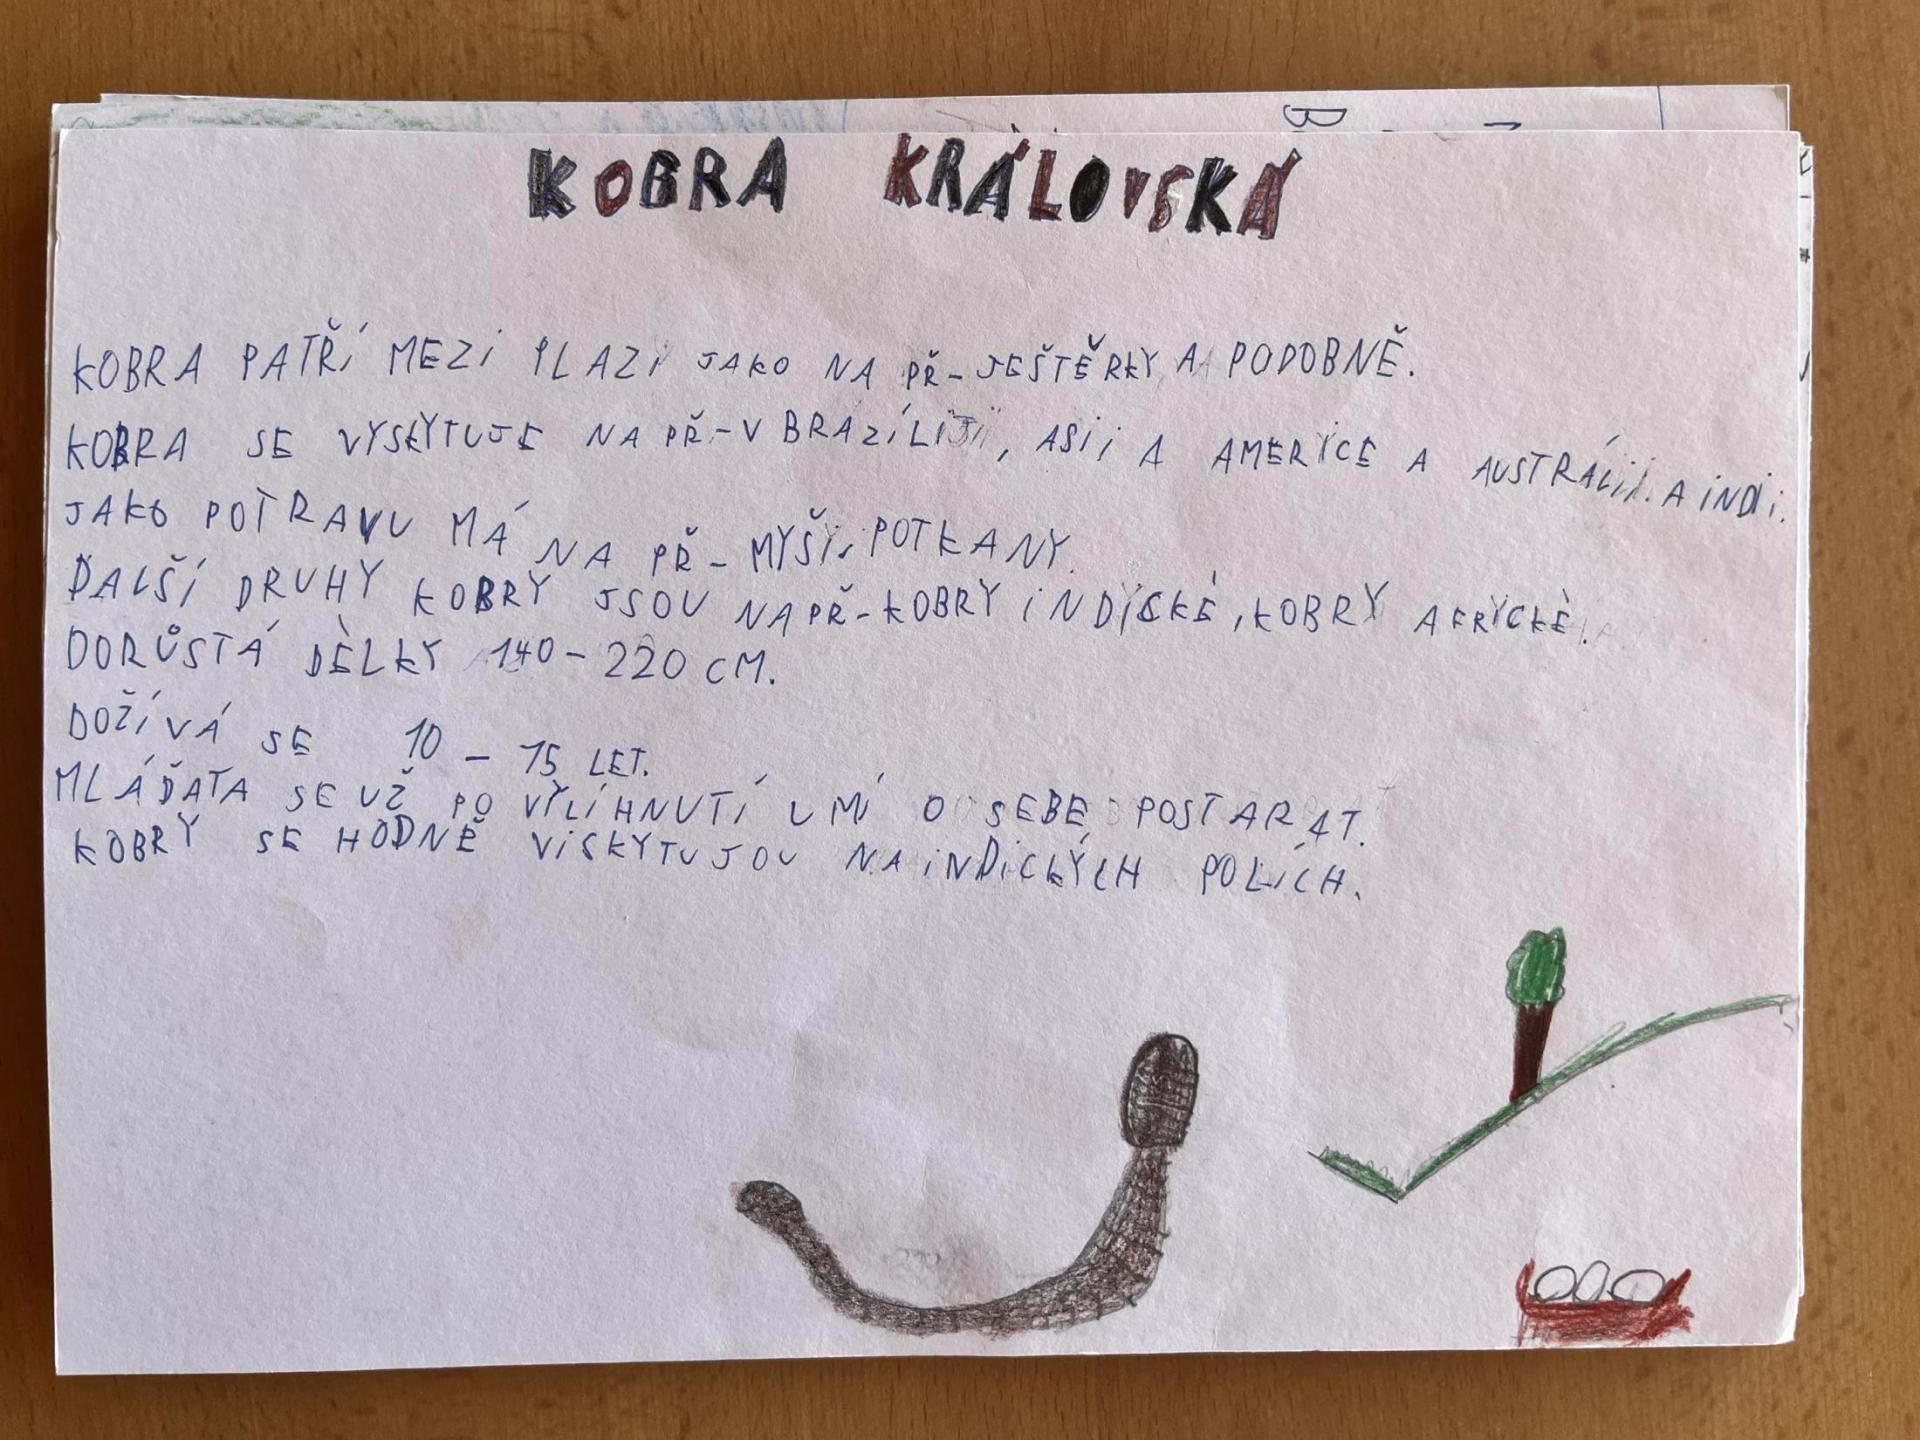 KOBRA KRÁLOVSKÁ
KOBRA PATŘÍ MEZI PLAZI JAKO NA PŘ- JEŠTĚRKY A PODOBNĚ.
KOBRA SE VYSKYTUJE NA PŘ-V BRAZÍLIJI, ASII A AMERYCE A AUSTRÁLII. A INDII.
JAKO POTRAVU MÁ NA PŘ- MYŠY. POTKANY.
ĎALŠÍ DRUHY KOBRY JSOU NAPŘ-KOBRY INDYCKÉ, KOBRY AFRYCKÉ.
DORŮSTÁ DÉLKY 140-220 CM.
DOŽÍVÁ SE 10 - 15 LET.
MLÁĎATA SE UŽ PO VYLÍHNUTÍ UMÍ O SEBE POSTARAT.
KOBRY SE HODNĚ VISKYTUJOU NA INDICKÝCH POLÍCH.